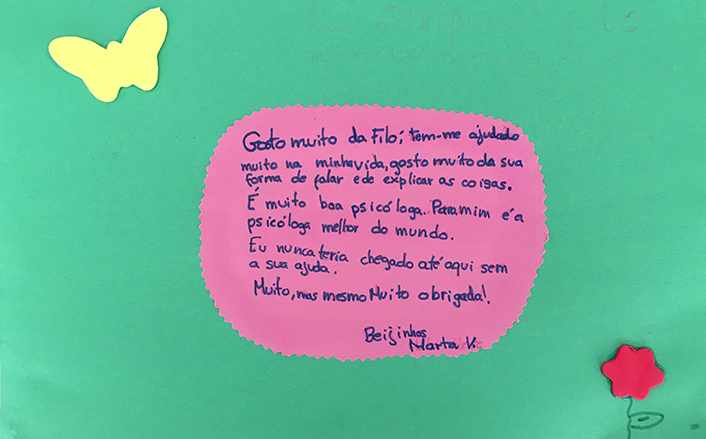 Gosto muito da Filó; tem-me ajudado
muito na minha vida, gosto muito da sua
forma de falar e de explicar as coisas.
É muito boa psicóloga. Para mim é a
psicóloga melhor do mundo.
Eu nunca teria chegado até aqui sem
a sua ajuda.
Muito, mas mesmo Muito obrigada!
Beijinhos
Marta V.